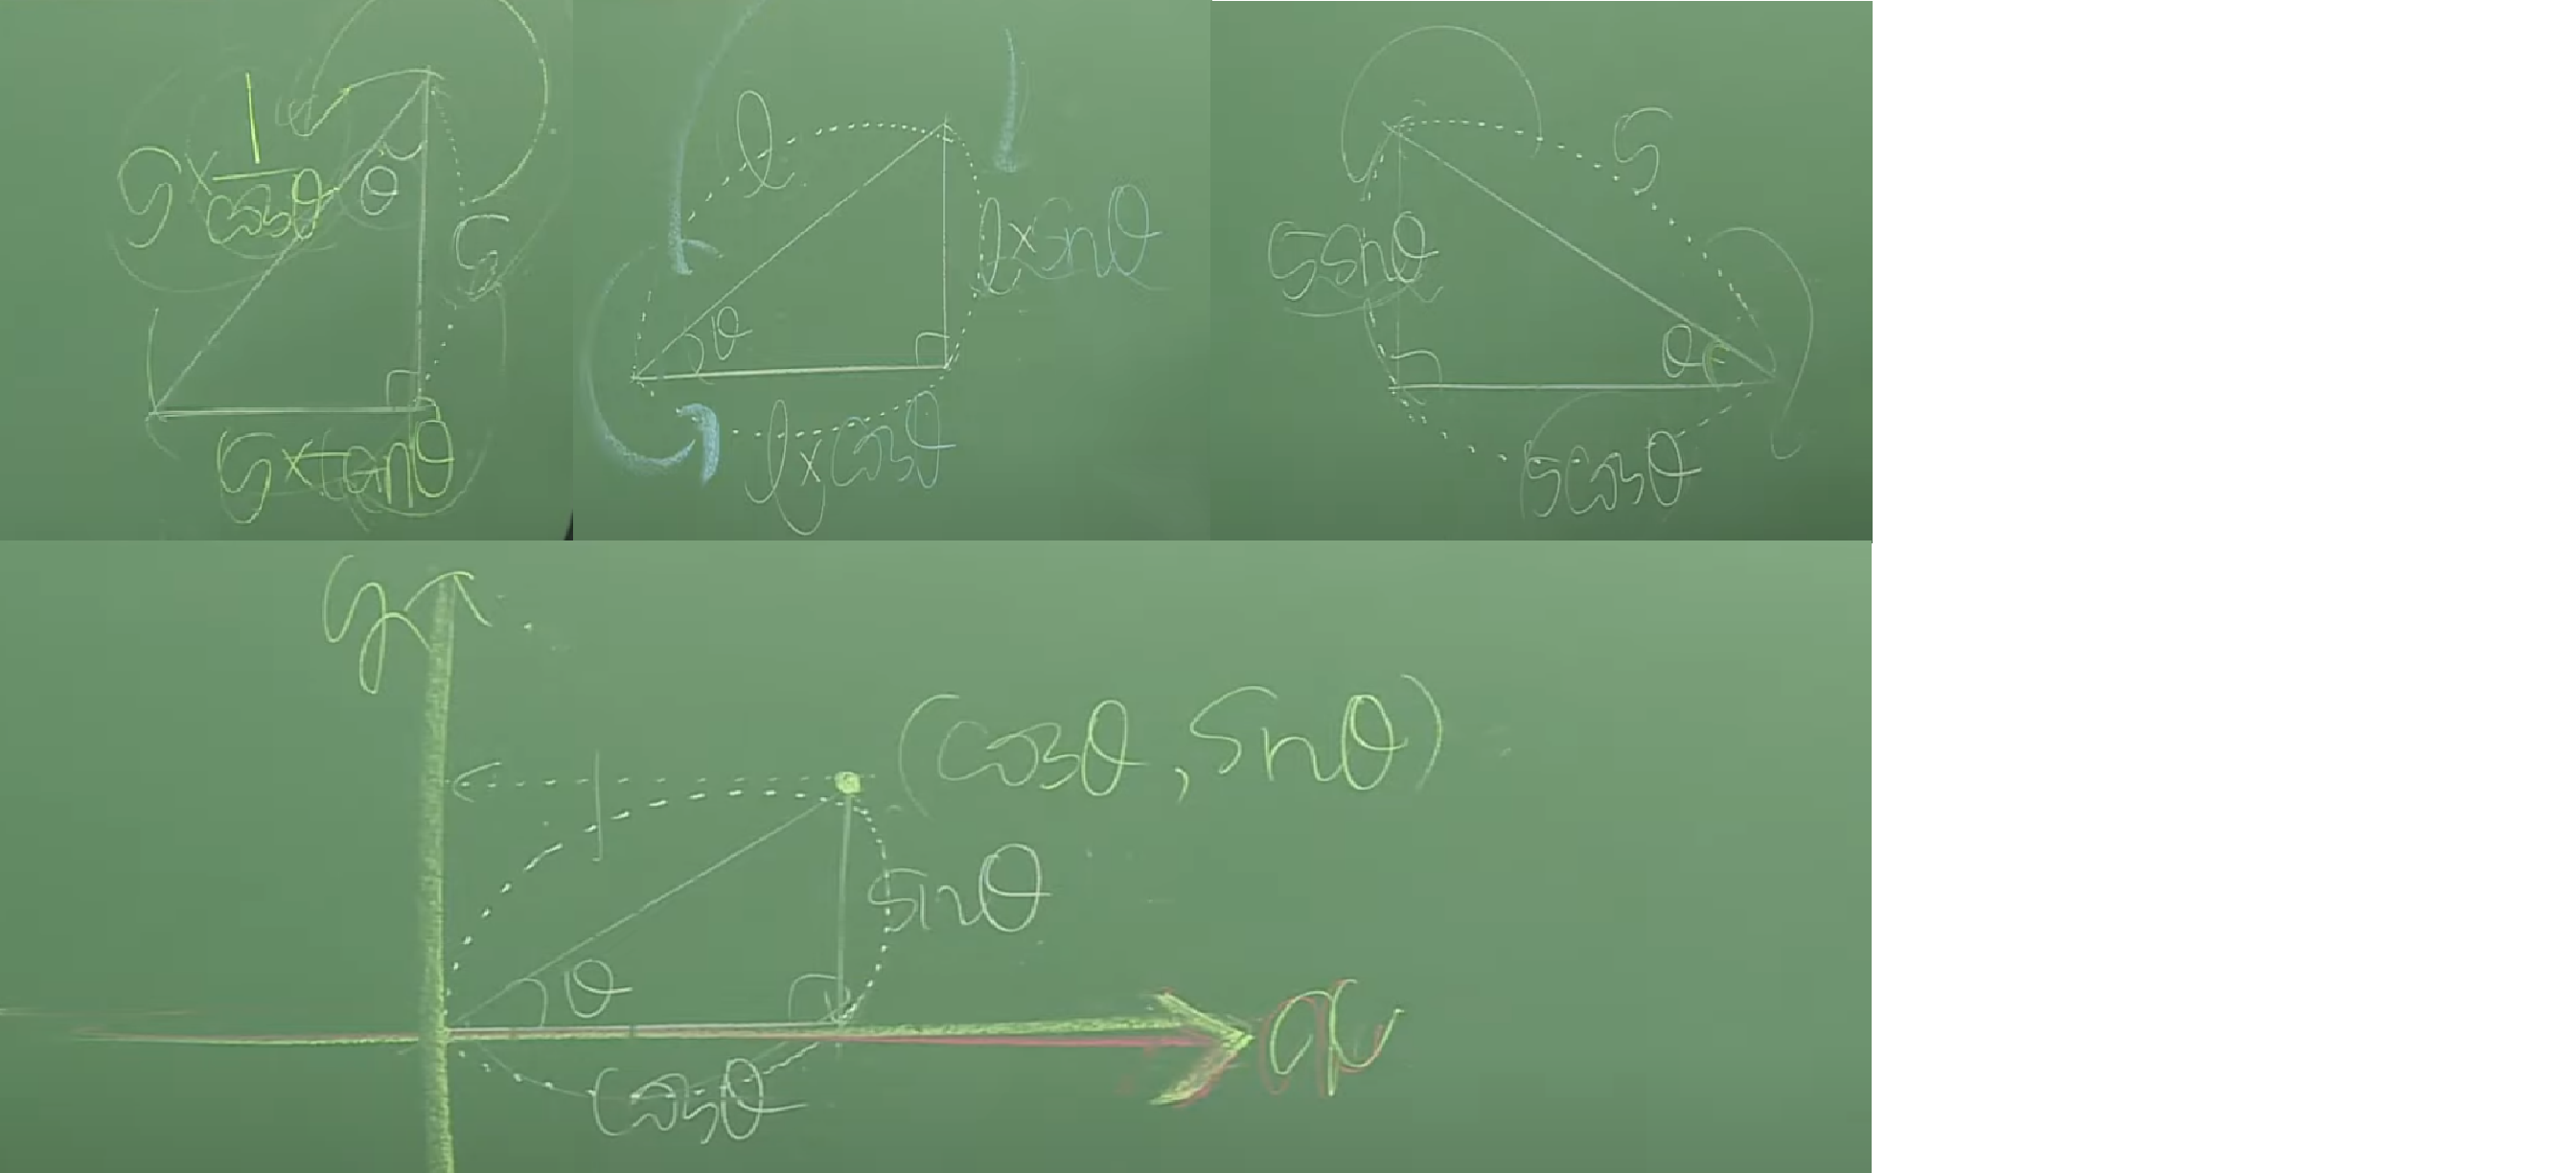 5 × 1/cosθ
θ
5
5×tanθ
l
l×sinθ
θ
l×cosθ
5
5sinθ
θ
5cosθ
y
(cosθ, sinθ)
1
sinθ
θ
x
cosθ